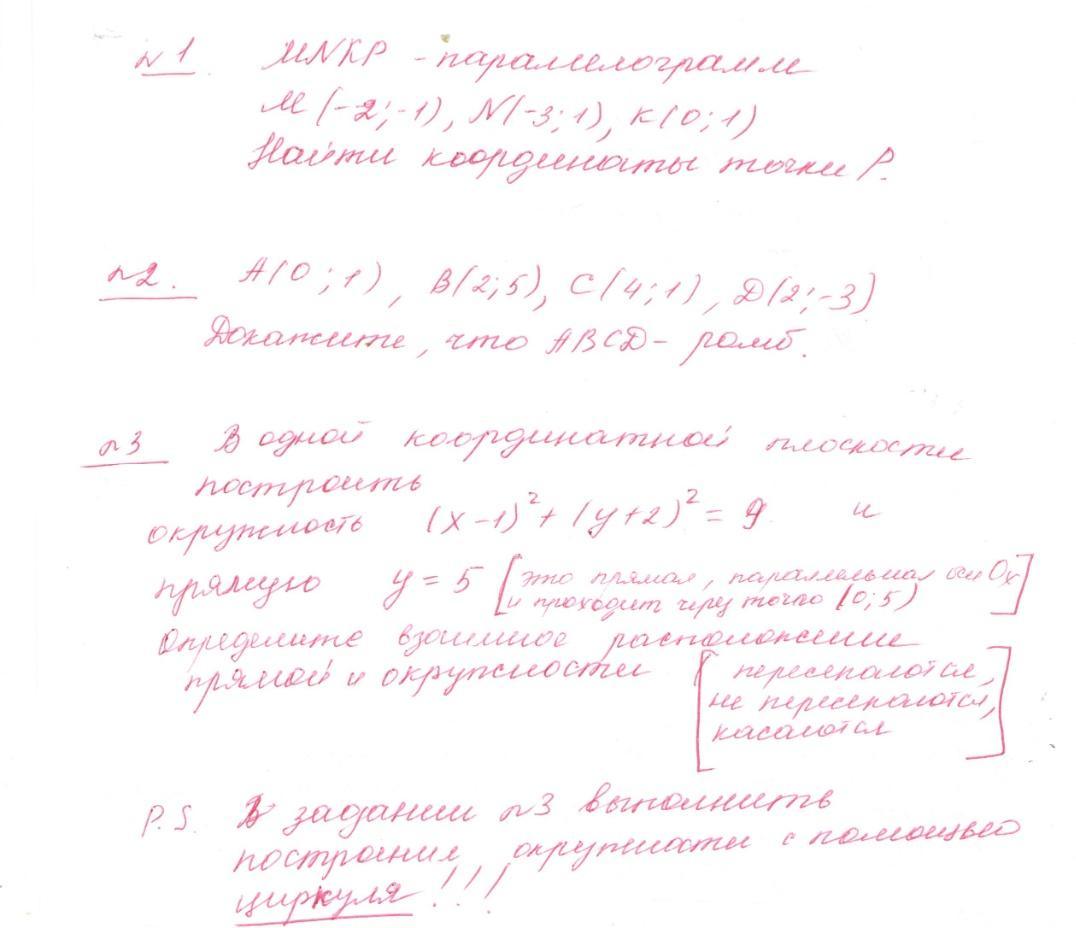 №1 MNKP - параллелограмм
M(-2;-1), N(-3;1), K(0;1)
Найти координаты точки P.
№2. A(0;1), B(2;5), C(4;1), D(2;-3)
Докажите, что ABCD - ромб.
№3 В одной координатной плоскости
построить
окружность (x-1)² + (y+2)² = 9 и
прямую y = 5 [это прямая, параллельная оси Ox
и проходит через точку (0;5)]
Определите взаимное расположение
прямой и окружности [пересекаются,
не пересекаются,
касаются]
P.S. В задании №3 выполнить
построение окружности с помощью
циркуля!!!